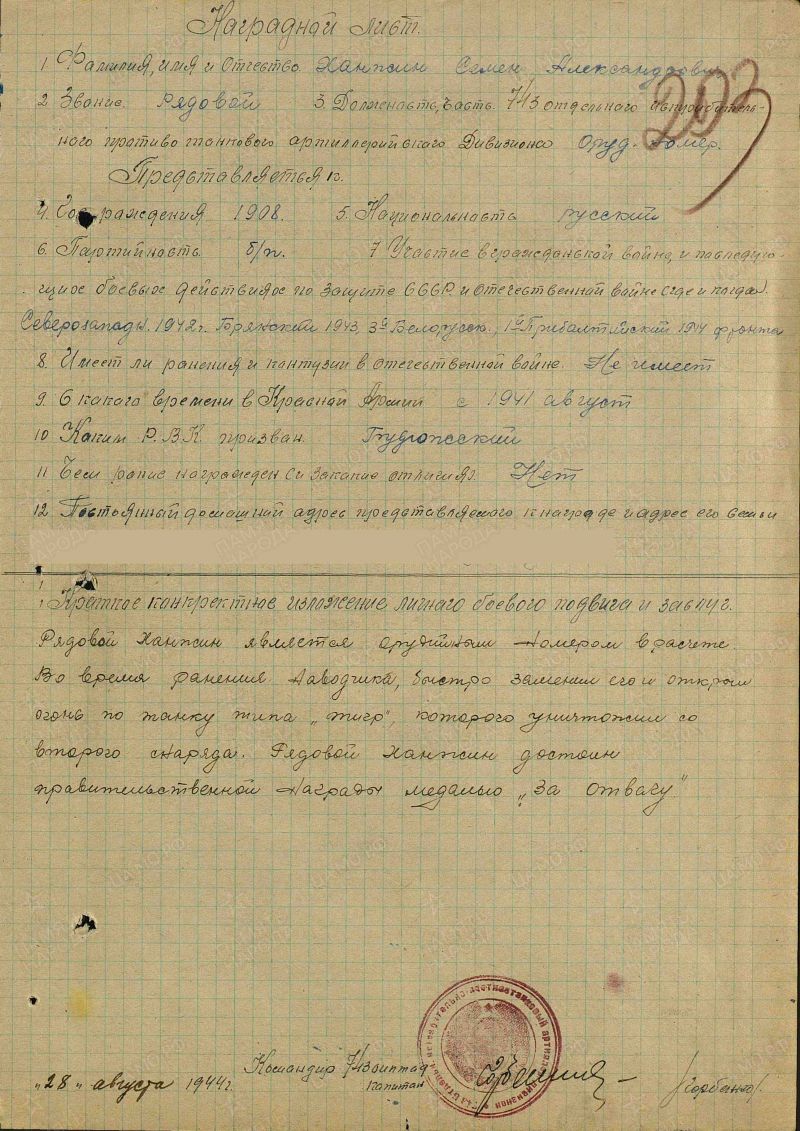 Наградной лист.
1 Фамилия, имя и Отчество Ханжин Семен Александрович
203
2 Звание. Рядовой 3. Должность, часть 743 отдельного истребитель-
ного противо танкового артиллерийского Дивизиона оруд. номер.
Представляеться к.
4. Год рождения 1908. 5. Национальность русский
6. Партийность б/п. 7 Участие в гражданской войне и последую-
щиос боевых действияос по защите СССР и отечественной войне (где и когда).
Северозапады. 1942г. Брянский 1943, 3й Белорусск., 1й Прибалтийский 1944 фронта
8. Имеет ли ранения и кантузии в отечественной войне. Не имеет
9. С какаго времени в Красной Армии с 1941 август
10 Каким Р.В.К призван.
11 Чем ранее награжден (и закакие отличия). Нет
12. Постоянный домашний адрес представляемого к награде и адрес его семьи
Краткое канкректное изложение личнаго боевого подвига и заслуг.
Рядовой Ханжин является орудийным номером в расчете.
Во время ранения Наводчика, быстро заменил его и открыл
огонь по танку типа „тигр", которого уничтожил со
второго снаряда. Рядовой Ханжин достоин
правительственной Награды медалью „За отвагу"
Командир 743 оиптад
капитан /Горбенко/.
„28" августа 1944г.